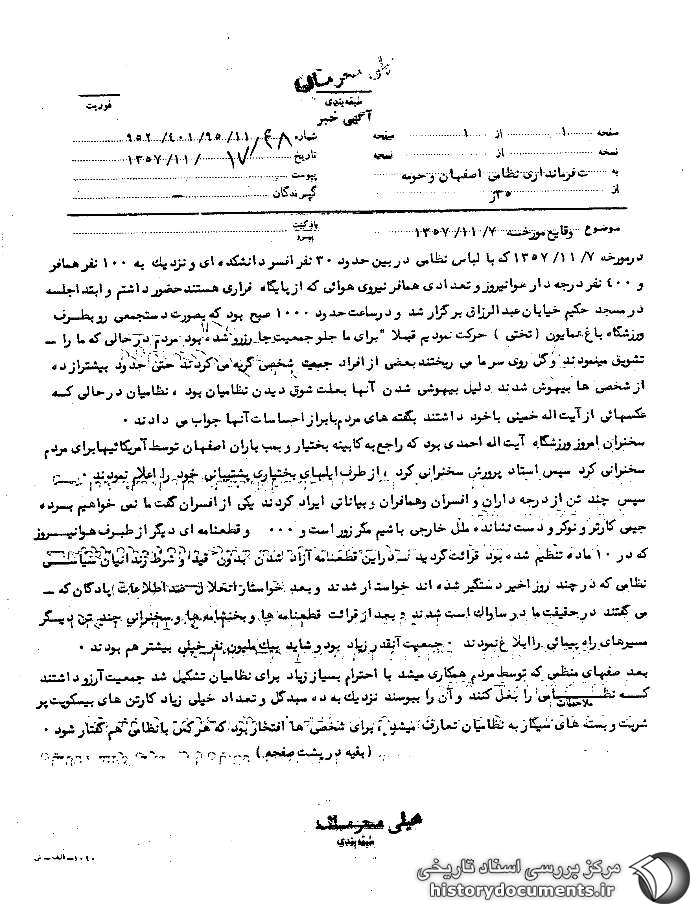 خیلی محرمانه
طبقه‌بندی
فوریت
آگهی خبر
صفحه ۱ از ۱ صفحه
شماره ۹۵۲/۴۰۱/۹۵/۱۱/۴۸
نسخه از نسخه
تاریخ ۱۷/۱۱/۱۳۵۷
به فرمانداری نظامی اصفهان و حومه
پیوست
از ۳۵ز
گیرندگان ــ
موضوع وقایع مورخه ۱۳۵۷/۱۱/۷
بازگشت
پیرو
درمورخه ۱۳۵۷/۱۱/۷ که با لباس نظامی در بین حدود ۳۰ نفر افسر دانشکده ای و نزدیک به ۱۰۰ نفر همافر
و ۴۰۰ نفر درجه دار هوانیروز و تعدادی همافر نیروی هوائی که از پایگاه فراری هستند حضور داشتم و ابتدا جلسه
در مسجد حکیم خیابان عبدالرزاق برگزار شد و در ساعت حدود ۱۰۰۰ صبح بود که بصورت دستجمعی رو بطرف
ورزشگاه باغ همایون (تختی) حرکت نمودیم قبلا" برای ما جلو جمعیت جا رزرو شده بود مردم در حالی که ما را ــ
تشویق مینمودند و گل روی سر ما می ریختند بعضی از افراد جمعیت شخصی گریه می کردند حتی حدود بیشتر از ده
از شخصی ها بیهوش شدند دلیل بیهوشی شدن آنها بعلت شوق دیدن نظامیان بود ، نظامیان در حالی کسه
عکسهائی از آیت اله خمینی با خود داشتند بگفته های مردم با ابراز احساسات آنها جواب می دادند .
سخنران امروز ورزشگاه آیت اله احمدی بود که راجع به کابینه بختیار و بمب باران اصفهان توسط آمریکائیها برای مردم
سخنرانی کرد سپس استاد پرورش سخنرانی کرد ، از طرف ایلهای بختیاری پشتیبانی خود را اعلام نمودند .
سپس چند تن از درجه داران و افسران و همافران و بیاناتی ایراد کردند یکی از افسران گفت ما نمی خواهیم بسرده
جیمی کارتر و نوکر و دست نشانده ملل خارجی باشیم مگر زور است و ۰۰۰ و قطعنامه ای دیگر از طرف هوانیسروز
که در ۱۰ ماده تنظیم شده بود قرائت گردید در این قطعنامه آزاد شدن بدون قید و شرط زندانیان سیاسی
نظامی که در چند روز اخیر دستگیر شده اند خواستار شدند و بعد خواستار انحلال ضد اطلاعات پادگان که ــ
می گفتند در حقیقت ما در ساواک است شدند و بعد از قرائت قطعنامه ها و بخشنامه ها و سخنرانی چند تن دیسگر
مسیرهای راه پیمائی را ابلاغ نمودند . جمعیت آنقدر زیاد بود و شاید بیک ملیون نفر خیلی بیشتر هم بودند .
بعد صفهای منظمی که توسط مردم همکاری میشد با احترام بسیار زیاد برای نظامیان تشکیل شد جمعیت آرزو داشتند
کسه نظـامی را بغل کنند و آن را ببوسند نزدیک به ده سبد گل و تعداد خیلی زیاد کارتن های بیسکویت پر
ملاحظات
شربت و بسته های سیگار به نظامیان تعارف میشد ، برای شخصی ها افتخار بود که هر کس با نظامی هم گفتار شود .
(بقیه در پشت صفحه)
خیلی محرمانه
طبقه بندی
۱۰۲۰ــالف ــ ش
مرکز بررسی اسناد تاریخی
historydocuments.ir